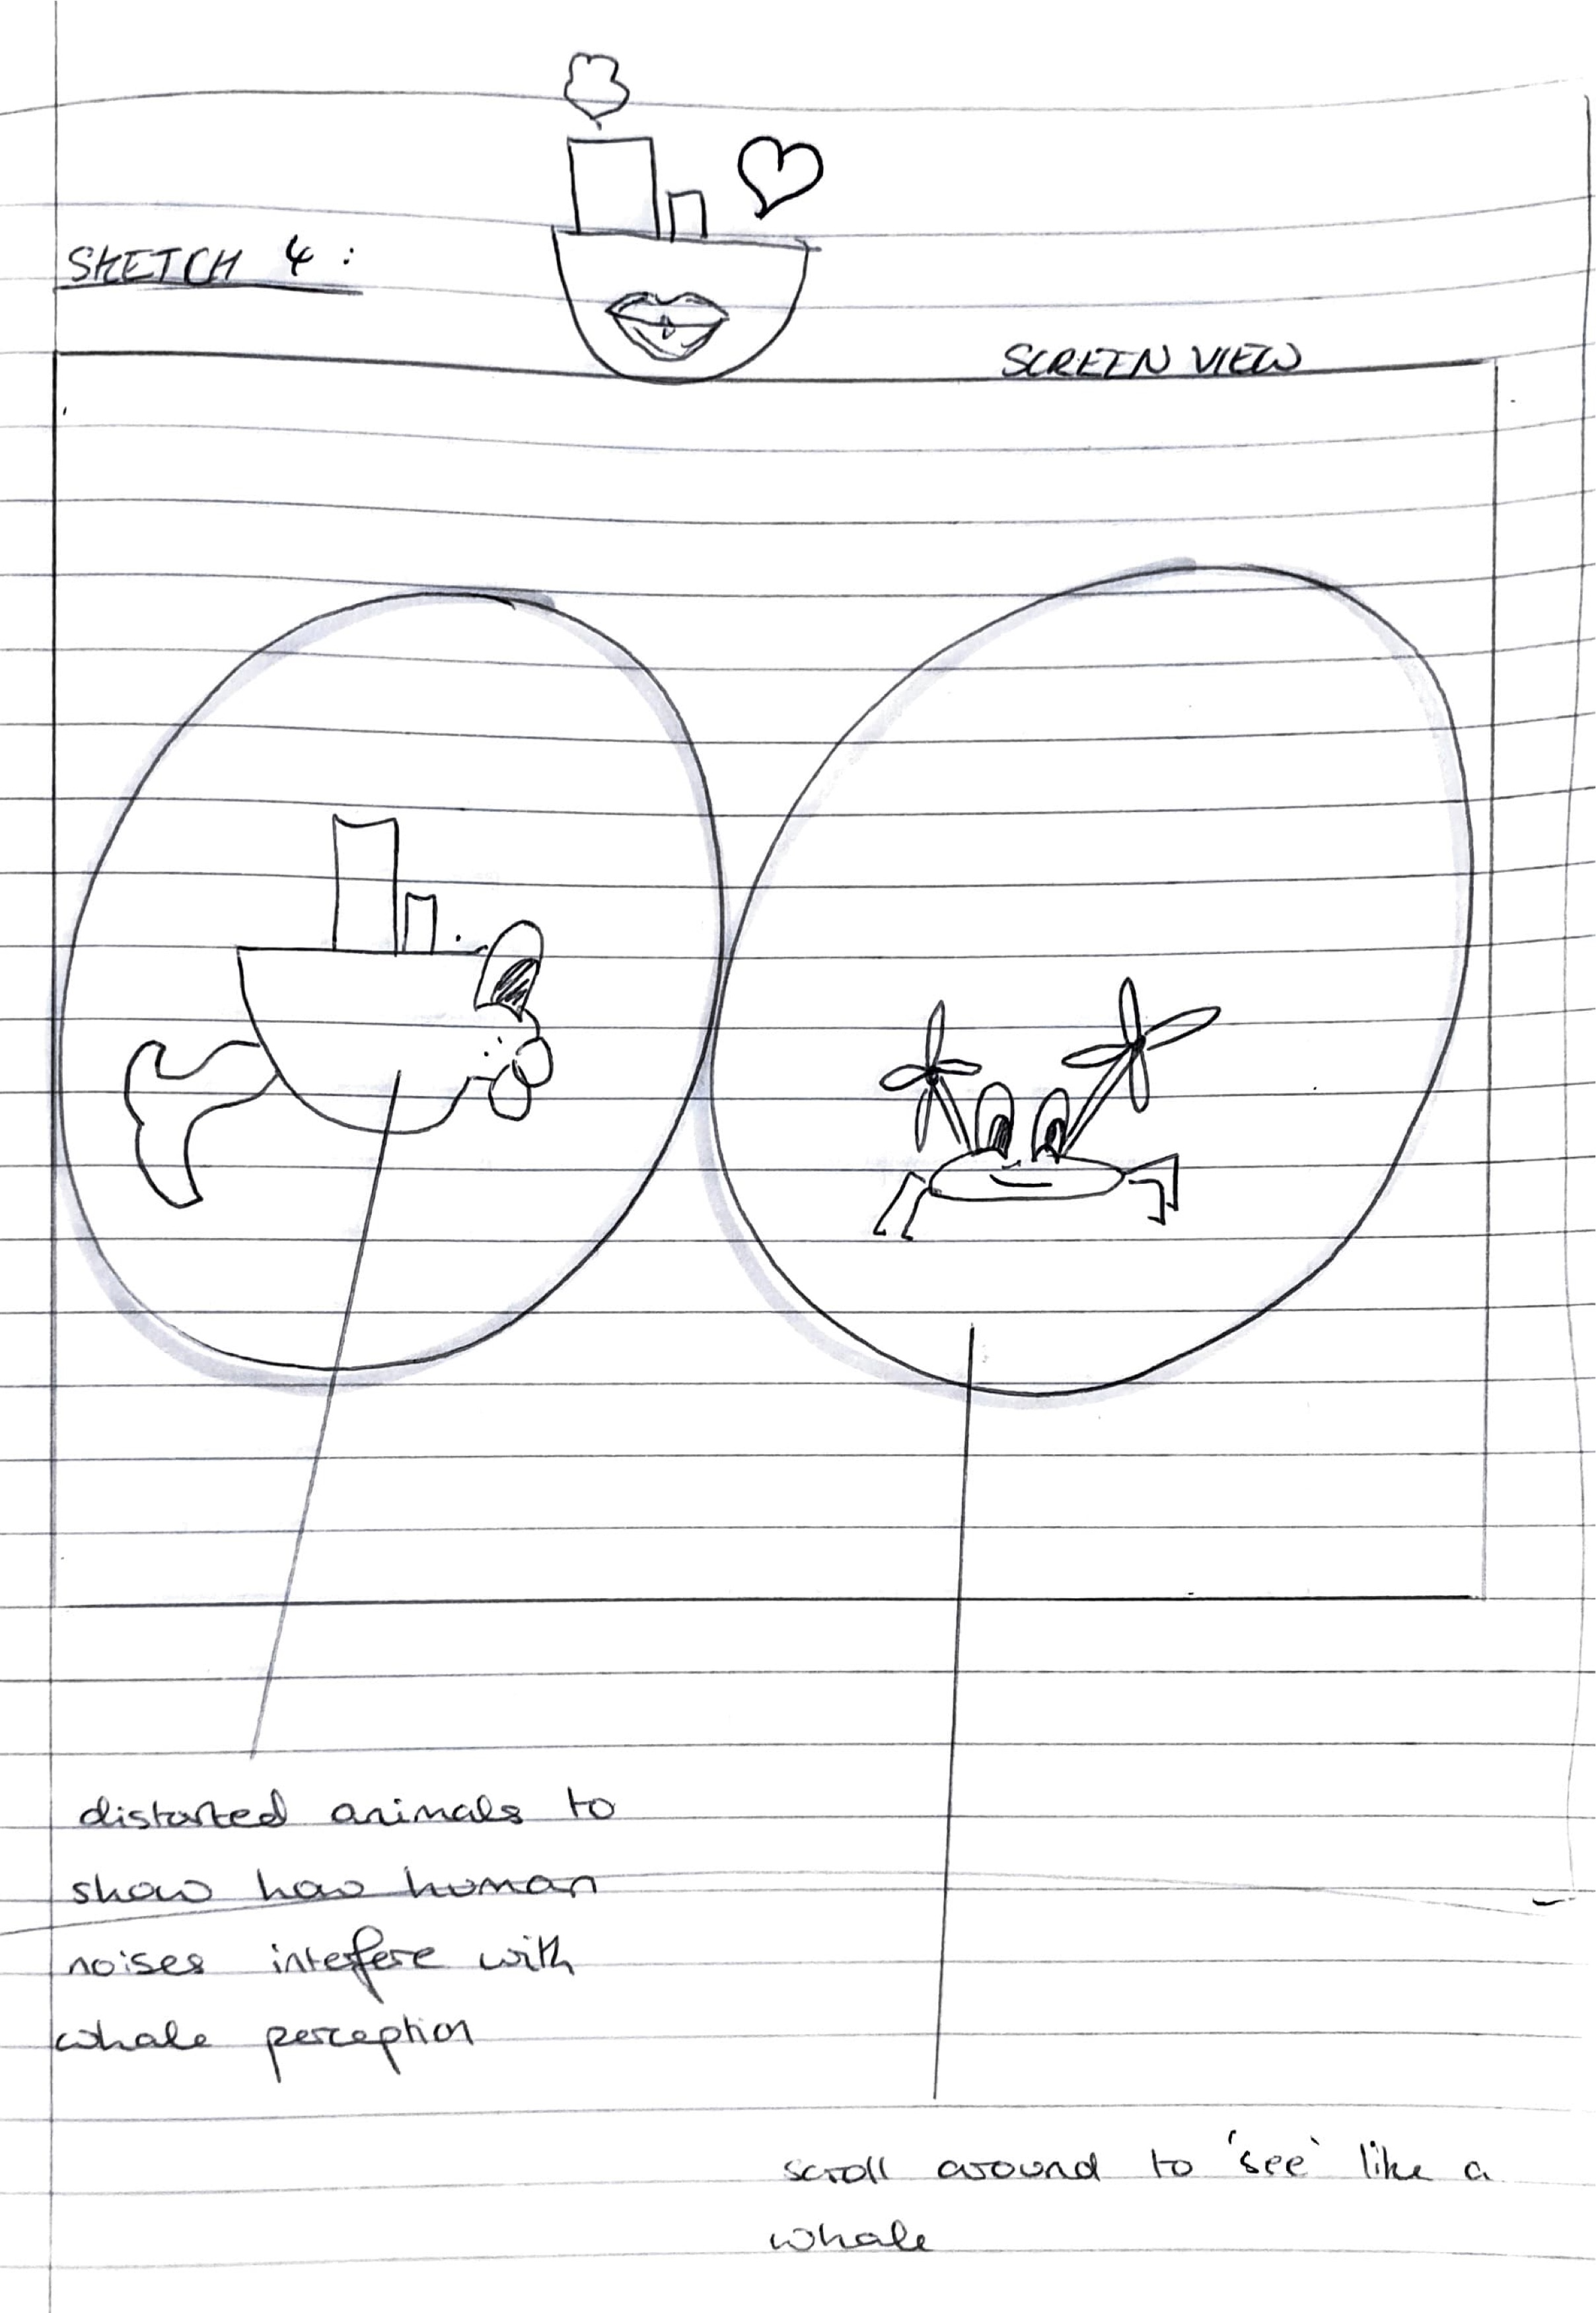 SKETCH 4 :
SCREEN VIEW
distorted animals to
show how human
noises interfere with
whale perception
scroll around to 'see' like a
whale